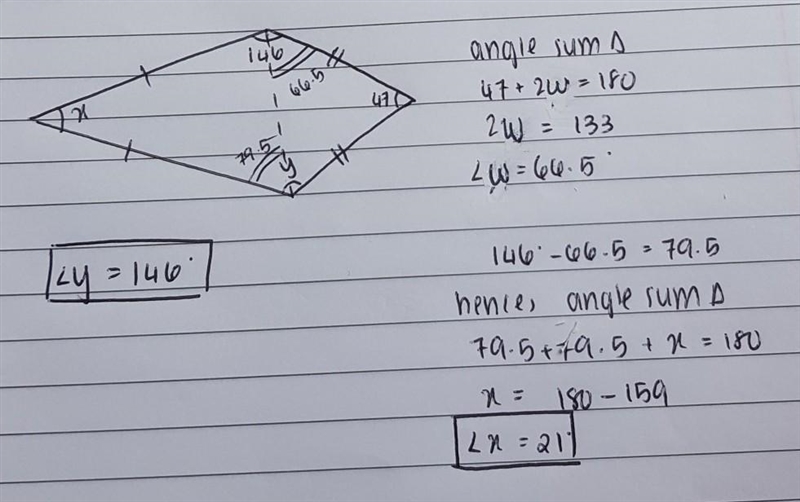 146
66.5
x
47
79.5
y
angle sum Δ
47 + 2w = 180
2w = 133
∠w = 66.5°
∠y = 146°
146° - 66.5 = 79.5
hence, angle sum Δ
79.5 + 79.5 + x = 180
x = 180 - 159
∠x = 21°